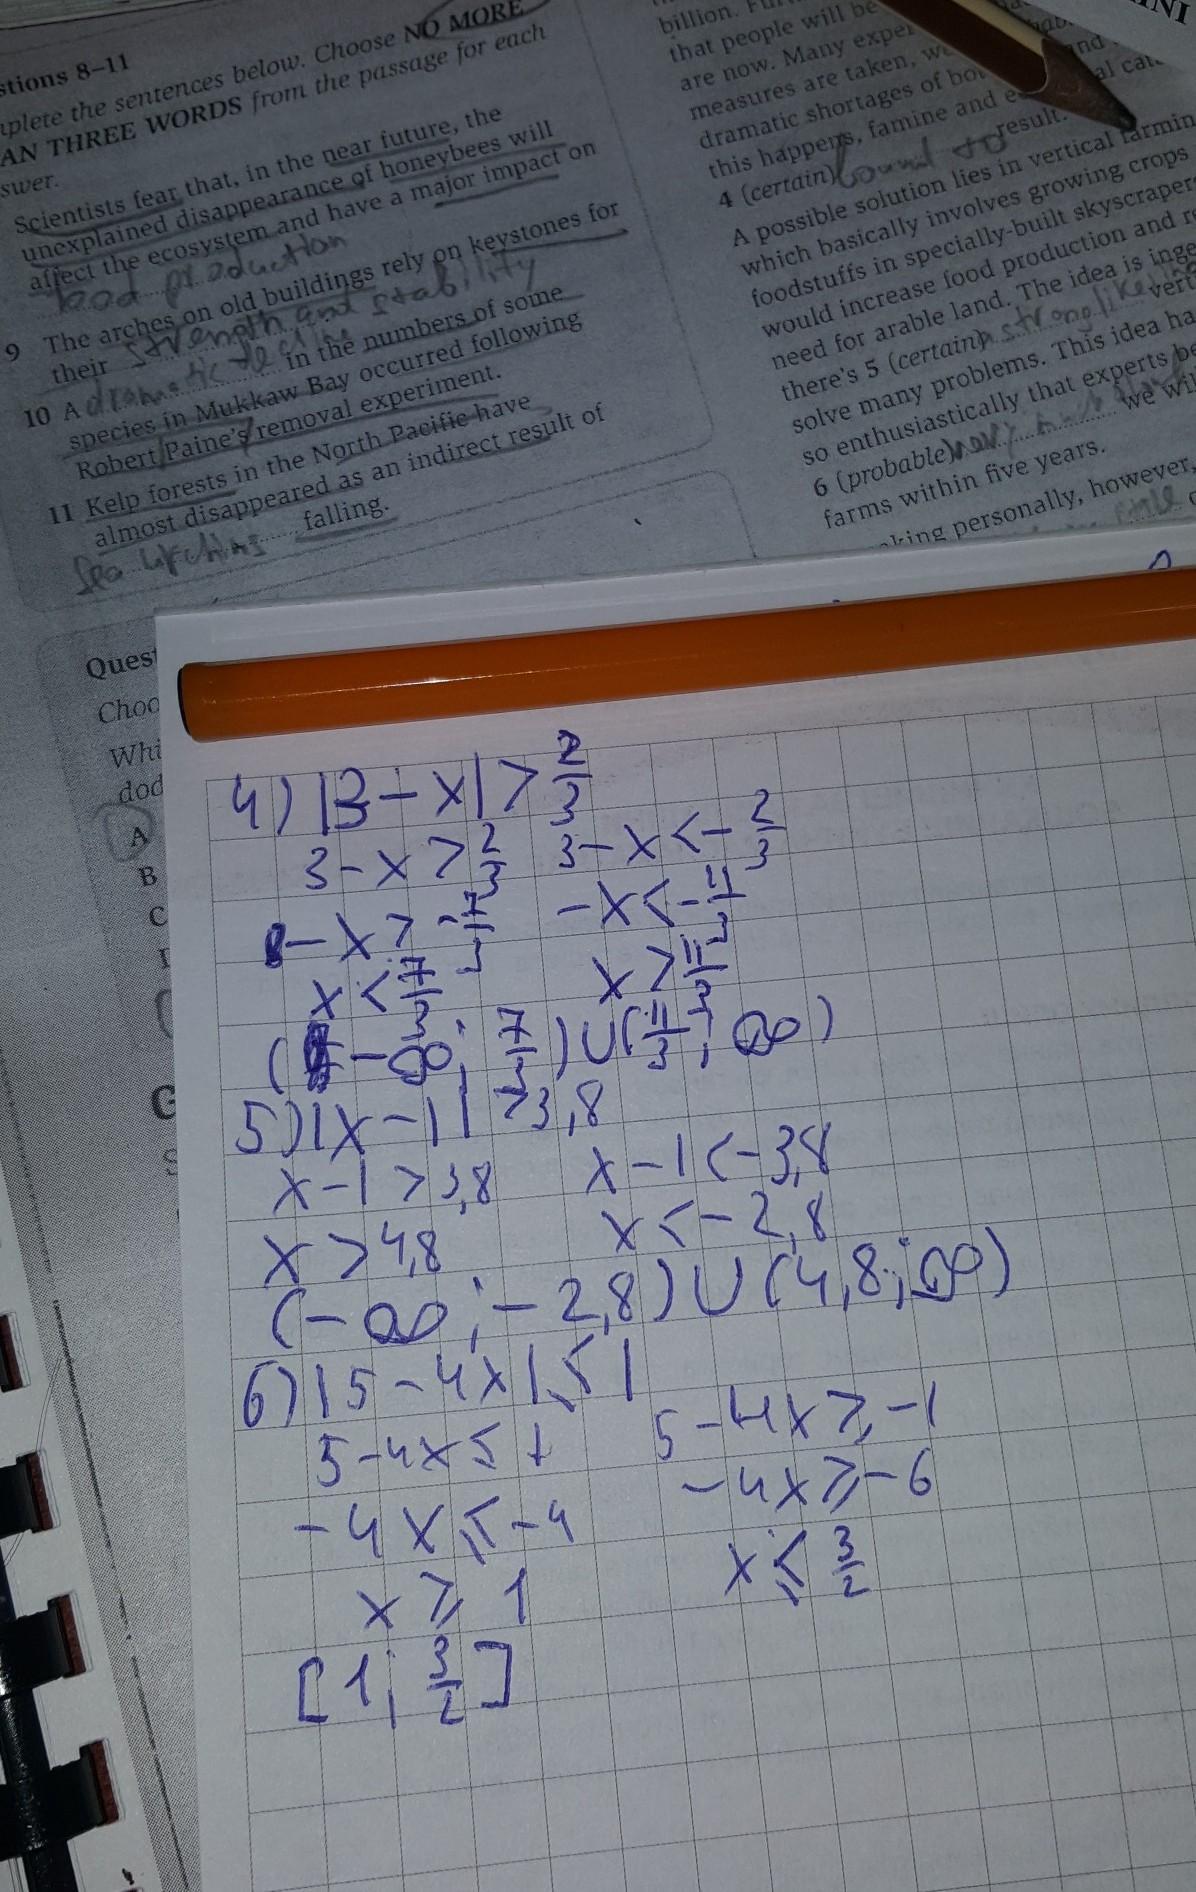 stions 8–11
mplete the sentences below. Choose NO MORE
AN THREE WORDS from the passage for each
swer.
Scientists fear that, in the near future, the
unexplained disappearance of honeybees will
affect the ecosystem and have a major impact on
food production
9 The arches on old buildings rely on keystones for
their strength and stability
10 A dramatic decline in the numbers of some
species in Mukkaw Bay occurred following
Robert Paine's removal experiment.
11 Kelp forests in the North Pacific have
almost disappeared as an indirect result of
Sea urchins falling.
Quest
Choo
Whi
dod
A
B
C
billion.
that people will be
are now. Many exper
measures are taken, we
dramatic shortages of
this happens, famine and
result.
4 (certain) bound to
A possible solution lies in vertical farmin
which basically involves growing crops
foodstuffs in specially-built skyscrapers
would increase food production and r
need for arable land. The idea is inge
there's 5 (certain) strong vert
solve many problems. This idea ha
so enthusiastically that experts be
6 (probable) we wil
farms within five years.
king personally, however,
4) |3-x|>2/3
3-x>2/3 3-x<-2/3
-x>-7/3 -x<-11/3
x<7/3 x>11/3
(-∞; 7/3)∪(11/3; ∞)
5) |x-1|>3,8
x-1>3,8 x-1<-3,8
x>4,8 x<-2,8
(-∞; -2,8)∪(4,8; ∞)
6) |5-4x|≤1
5-4x≤1 5-4x≥-1
-4x≤-4 -4x≥-6
x≥1 x≤3/2
[1; 3/2]